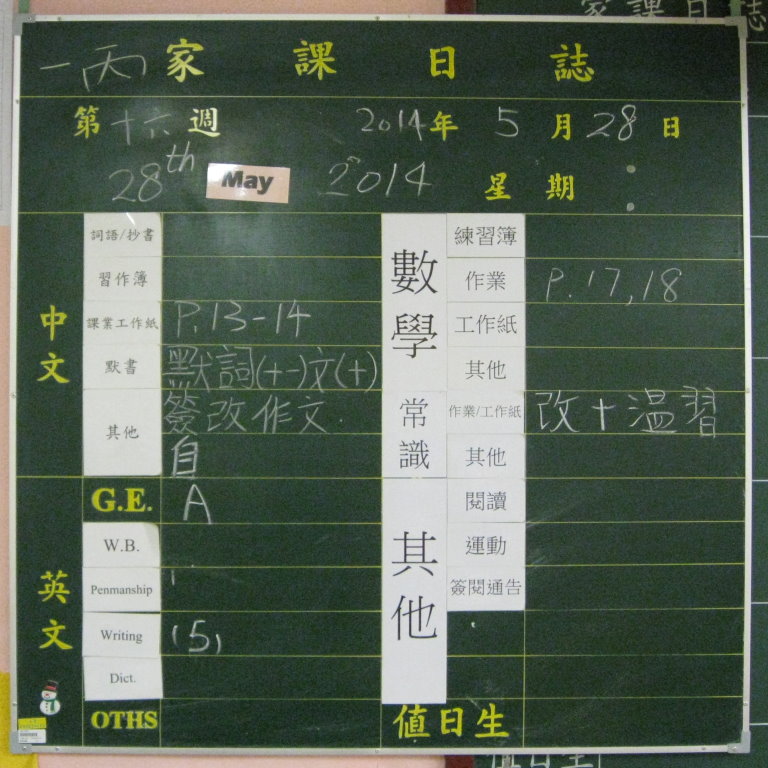 一丙 家課日誌
第十六週 2014年 5月28日
28th May 2014 星期
中文
詞語/抄書
習作簿
課業工作紙 P.13-14
默書 默詞(十一)文(十)
其他 簽改作文
自
英文
G.E. A
W.B.
Penmanship
Writing (5)
Dict.
OTHS
數學
練習簿
作業 P.17,18
工作紙
其他
常識
作業/工作紙 改十溫習
其他
其他
閱讀
運動
簽閱通告
值日生
家課日誌
值日生